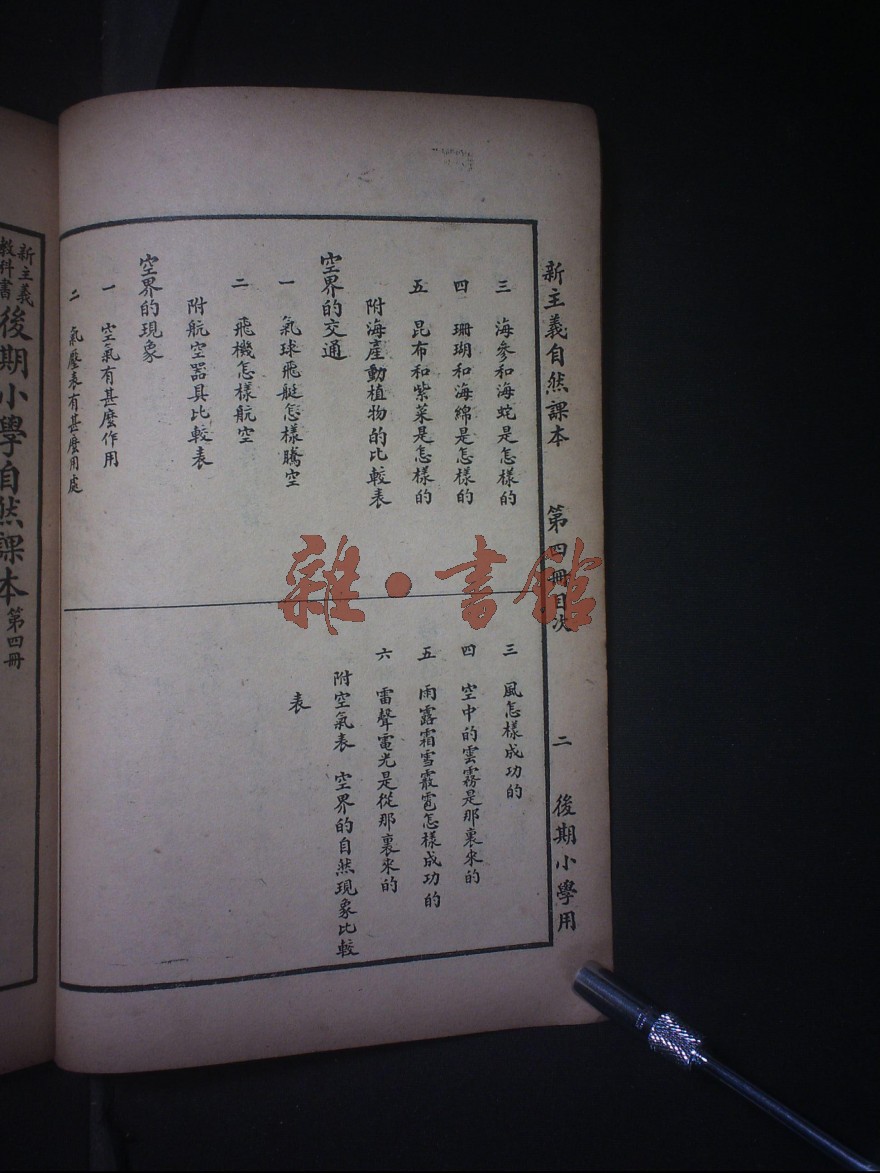 新主義自然課本 第四冊目次 二 後期小學用
三 海參和海蛇是怎樣的
四 珊瑚和海綿是怎樣的
五 昆布和紫菜是怎樣的
附海產動植物的比較表
空界的交通
一 氣球飛艇怎樣騰空
二 飛機怎樣航空
附航空器具比較表
空界的現象
一 空氣有甚麼作用
二 氣壓表有甚麼用處
三 風怎樣成功的
四 空中的雲霧是那裏來的
五 雨露霜雪霰雹怎樣成功的
六 雷聲電光是從那裏來的
附空氣表 空界的自然現象比較
表
新主義
教科書
後期小學自然課本 第四冊
雜·書館